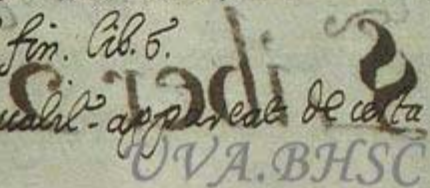 fin. lib. 6.
appareat de certa
UVA.BHSC